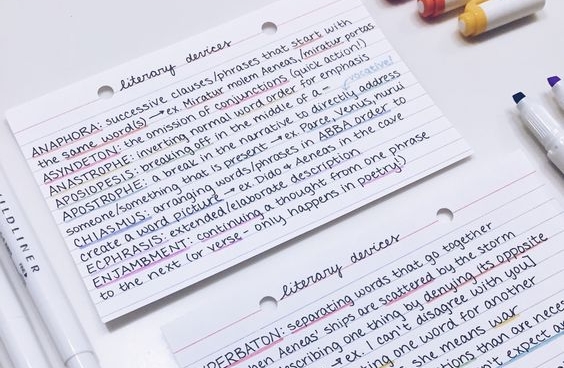 literary devices
ANAPHORA: successive clauses/phrases that start with
the same word(s) → ex. Miratur molem Aeneas, /miratur portas
ASYNDETON: the omission of conjunctions (quick action!)
ANASTROPHE: inverting normal word order for emphasis
APOSIOPESIS: breaking off in the middle of a-
vocative!
APOSTROPHE: a break in the narrative to directly address
someone/something that is present → ex. Parce, Venus, nurui
CHIASMUS: arranging words/phrases in ABBA order to
create a word picture → ex. Dido & Aeneas in the cave
ECPHRASIS: extended/elaborate description
ENJAMBMENT: continuing a thought from one phrase
to the next (or verse - only happens in poetry!)
literary devices
PERBATON: separating words that go together
hen Aeneas' ships are scattered by the storm
scribing one thing by denying its opposite
→ ex. I can't disagree with you]
ing one word for another
she means war
tions than are neces
t expect a
ILDLINER